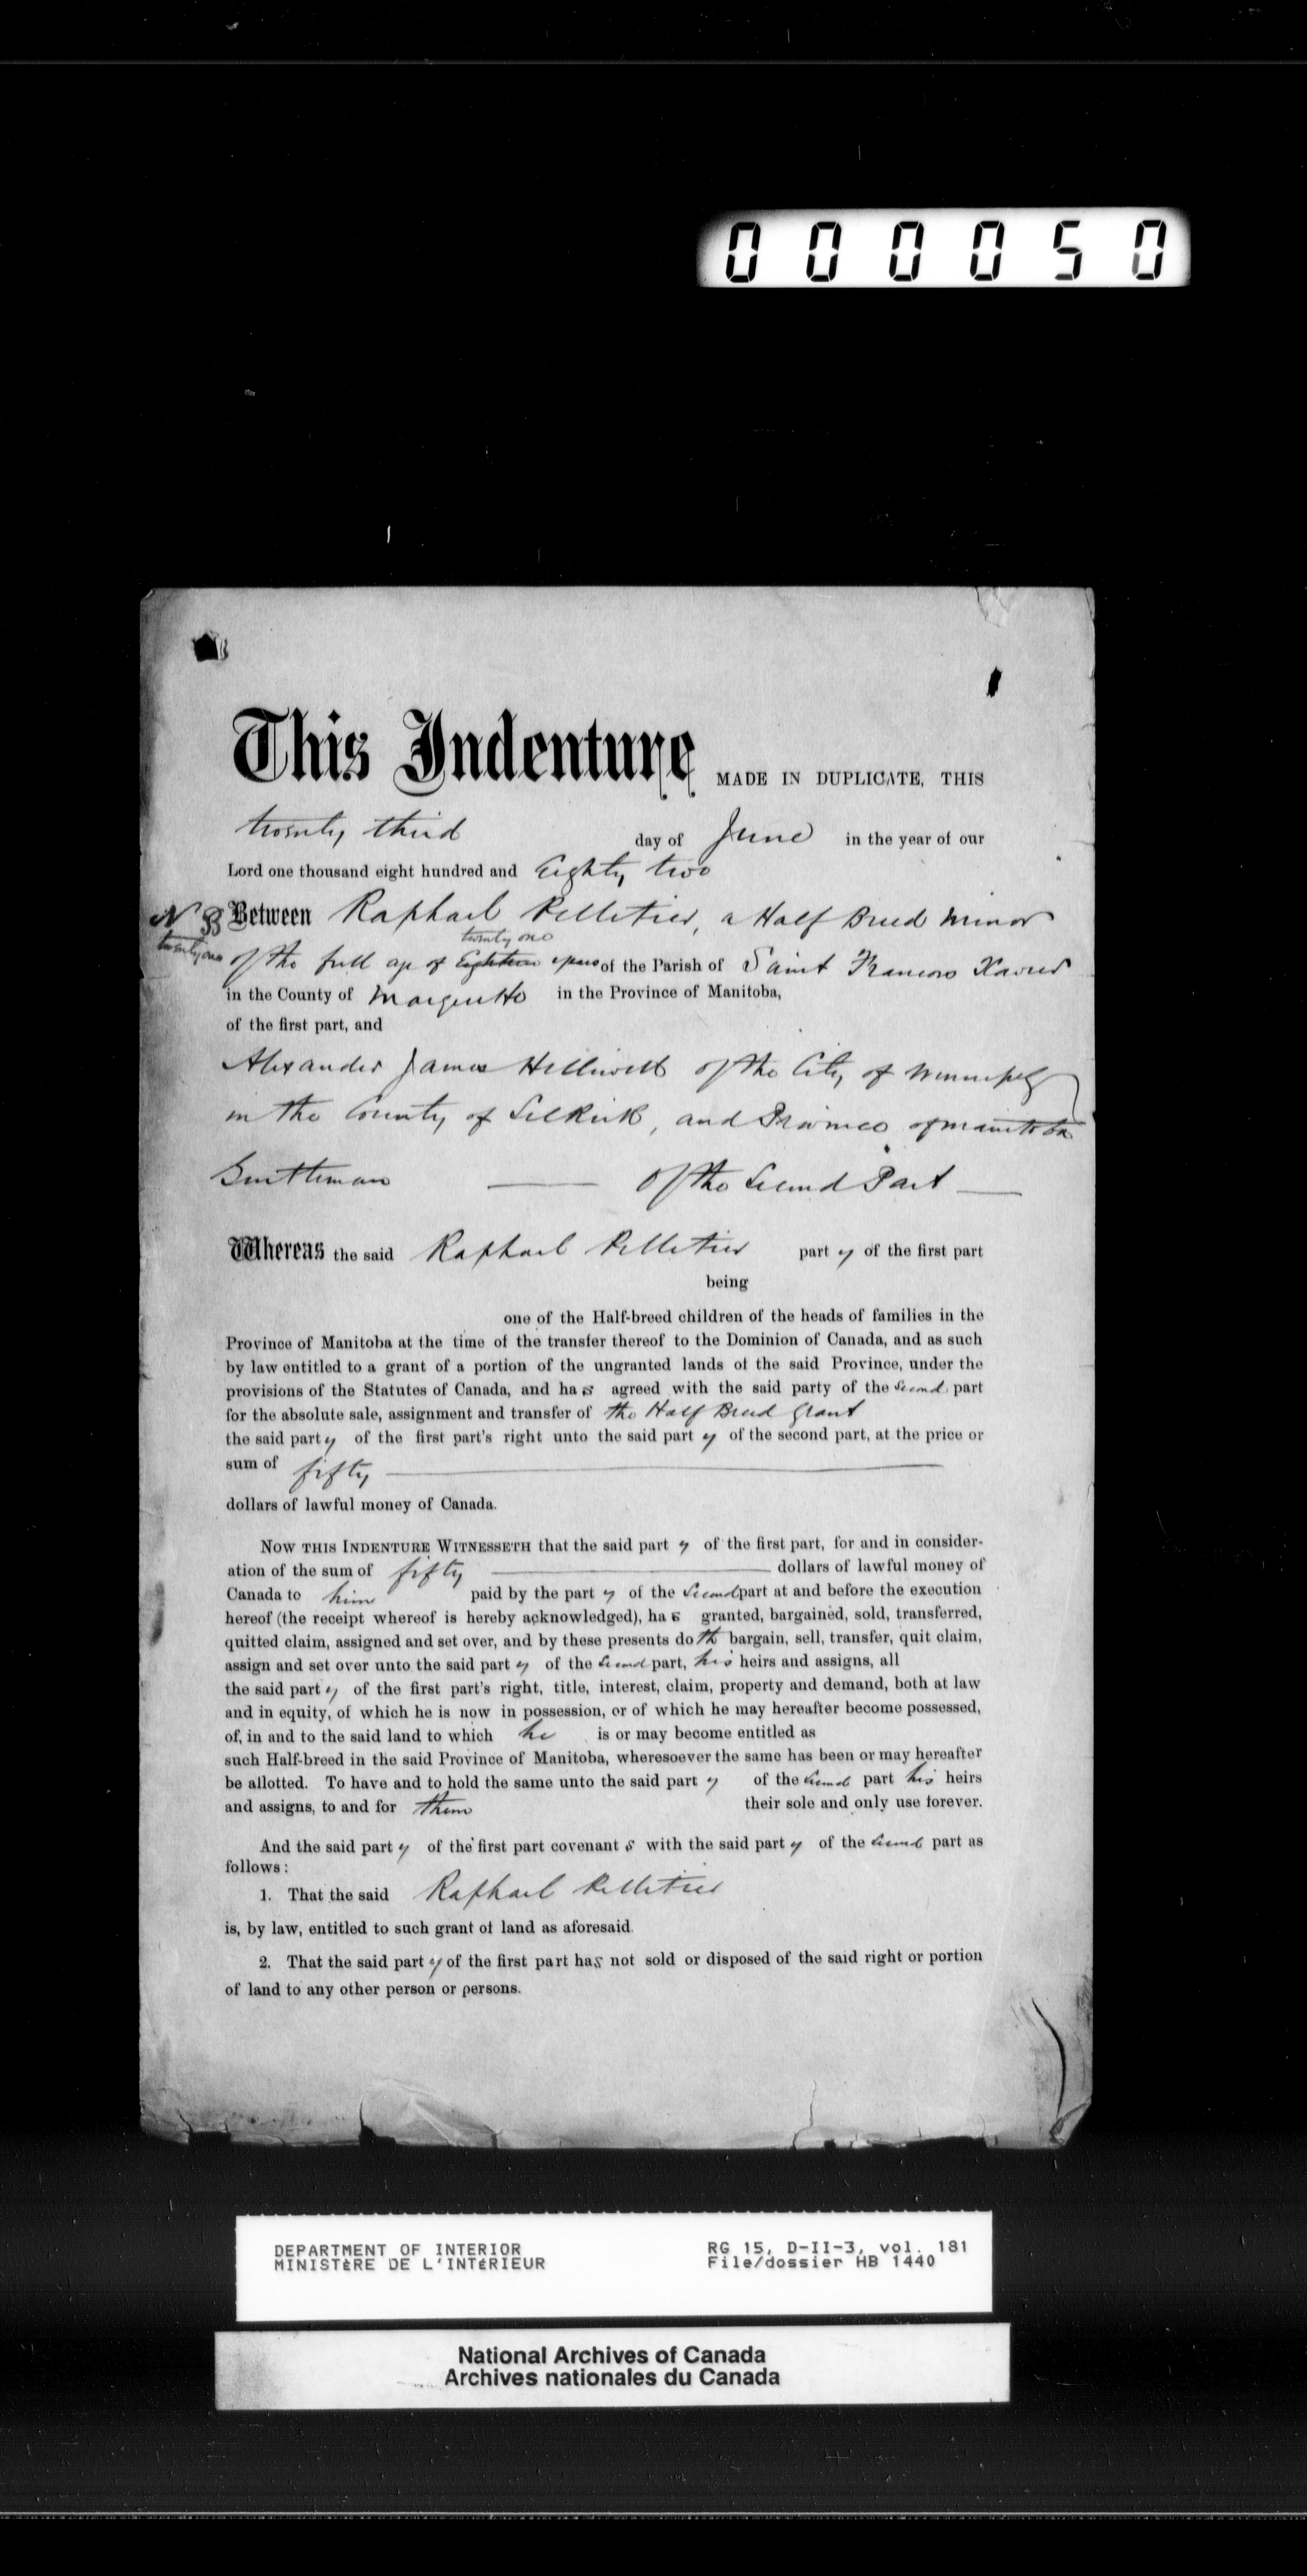 000050
This Indenture MADE IN DUPLICATE, THIS
twenty third day of June in the year of our
Lord one thousand eight hundred and Eighty two
N B Between Raphael Pelletier, a Half Breed minor
twenty one
twenty one of the full age of Eighteen years of the Parish of Saint Francois Xavier
in the County of Marquette in the Province of Manitoba,
of the first part, and
Alexander James Helliwell of the City of Winnipeg
in the County of Selkirk, and Province of Manitoba
Gentleman — Of the Second Part —
Whereas the said Raphael Pelletier party of the first part
being
one of the Half-breed children of the heads of families in the
Province of Manitoba at the time of the transfer thereof to the Dominion of Canada, and as such
by law entitled to a grant of a portion of the ungranted lands of the said Province, under the
provisions of the Statutes of Canada, and has agreed with the said party of the Second part
for the absolute sale, assignment and transfer of the Half Breed Grant
the said party of the first part's right unto the said party of the second part, at the price or
sum of fifty —
dollars of lawful money of Canada.
NOW THIS INDENTURE WITNESSETH that the said party of the first part, for and in consider-
ation of the sum of fifty — dollars of lawful money of
Canada to him paid by the party of the Second part at and before the execution
hereof (the receipt whereof is hereby acknowledged), has granted, bargained, sold, transferred,
quitted claim, assigned and set over, and by these presents doth bargain, sell, transfer, quit claim,
assign and set over unto the said party of the Second part, his heirs and assigns, all
the said party of the first part's right, title, interest, claim, property and demand, both at law
and in equity, of which he is now in possession, or of which he may hereafter become possessed,
of, in and to the said land to which he is or may become entitled as
such Half-breed in the said Province of Manitoba, wheresoever the same has been or may hereafter
be allotted. To have and to hold the same unto the said party of the Second part his heirs
and assigns, to and for them their sole and only use forever.
And the said party of the first part covenants with the said party of the Second part as
follows:
1. That the said Raphael Pelletier
is, by law, entitled to such grant of land as aforesaid.
2. That the said party of the first part has not sold or disposed of the said right or portion
of land to any other person or persons.
DEPARTMENT OF INTERIOR RG 15, D-II-3, vol. 181
MINISTÈRE DE L'INTÉRIEUR File/dossier HB 1440
National Archives of Canada
Archives nationales du Canada